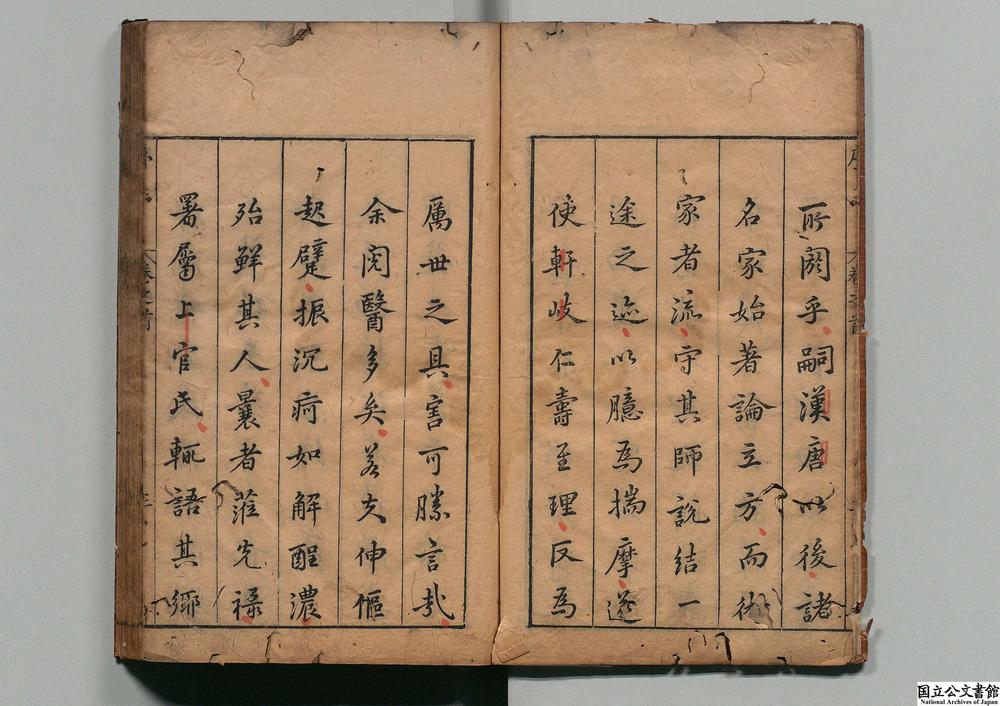 所闕乎嗣漢唐以後諸
名家始著論立方而術
家者流守其師說結一
途之迹以臆為揣摩遂
使軒岐仁壽至理反為
厲世之具害可勝言哉
余閱醫多矣若夫伸傴
起躄振沉痾如解酲濃
殆鮮其人曩者蒞光祿
署屬上官氏輒語其鄉
国立公文書館
National Archives of Japan